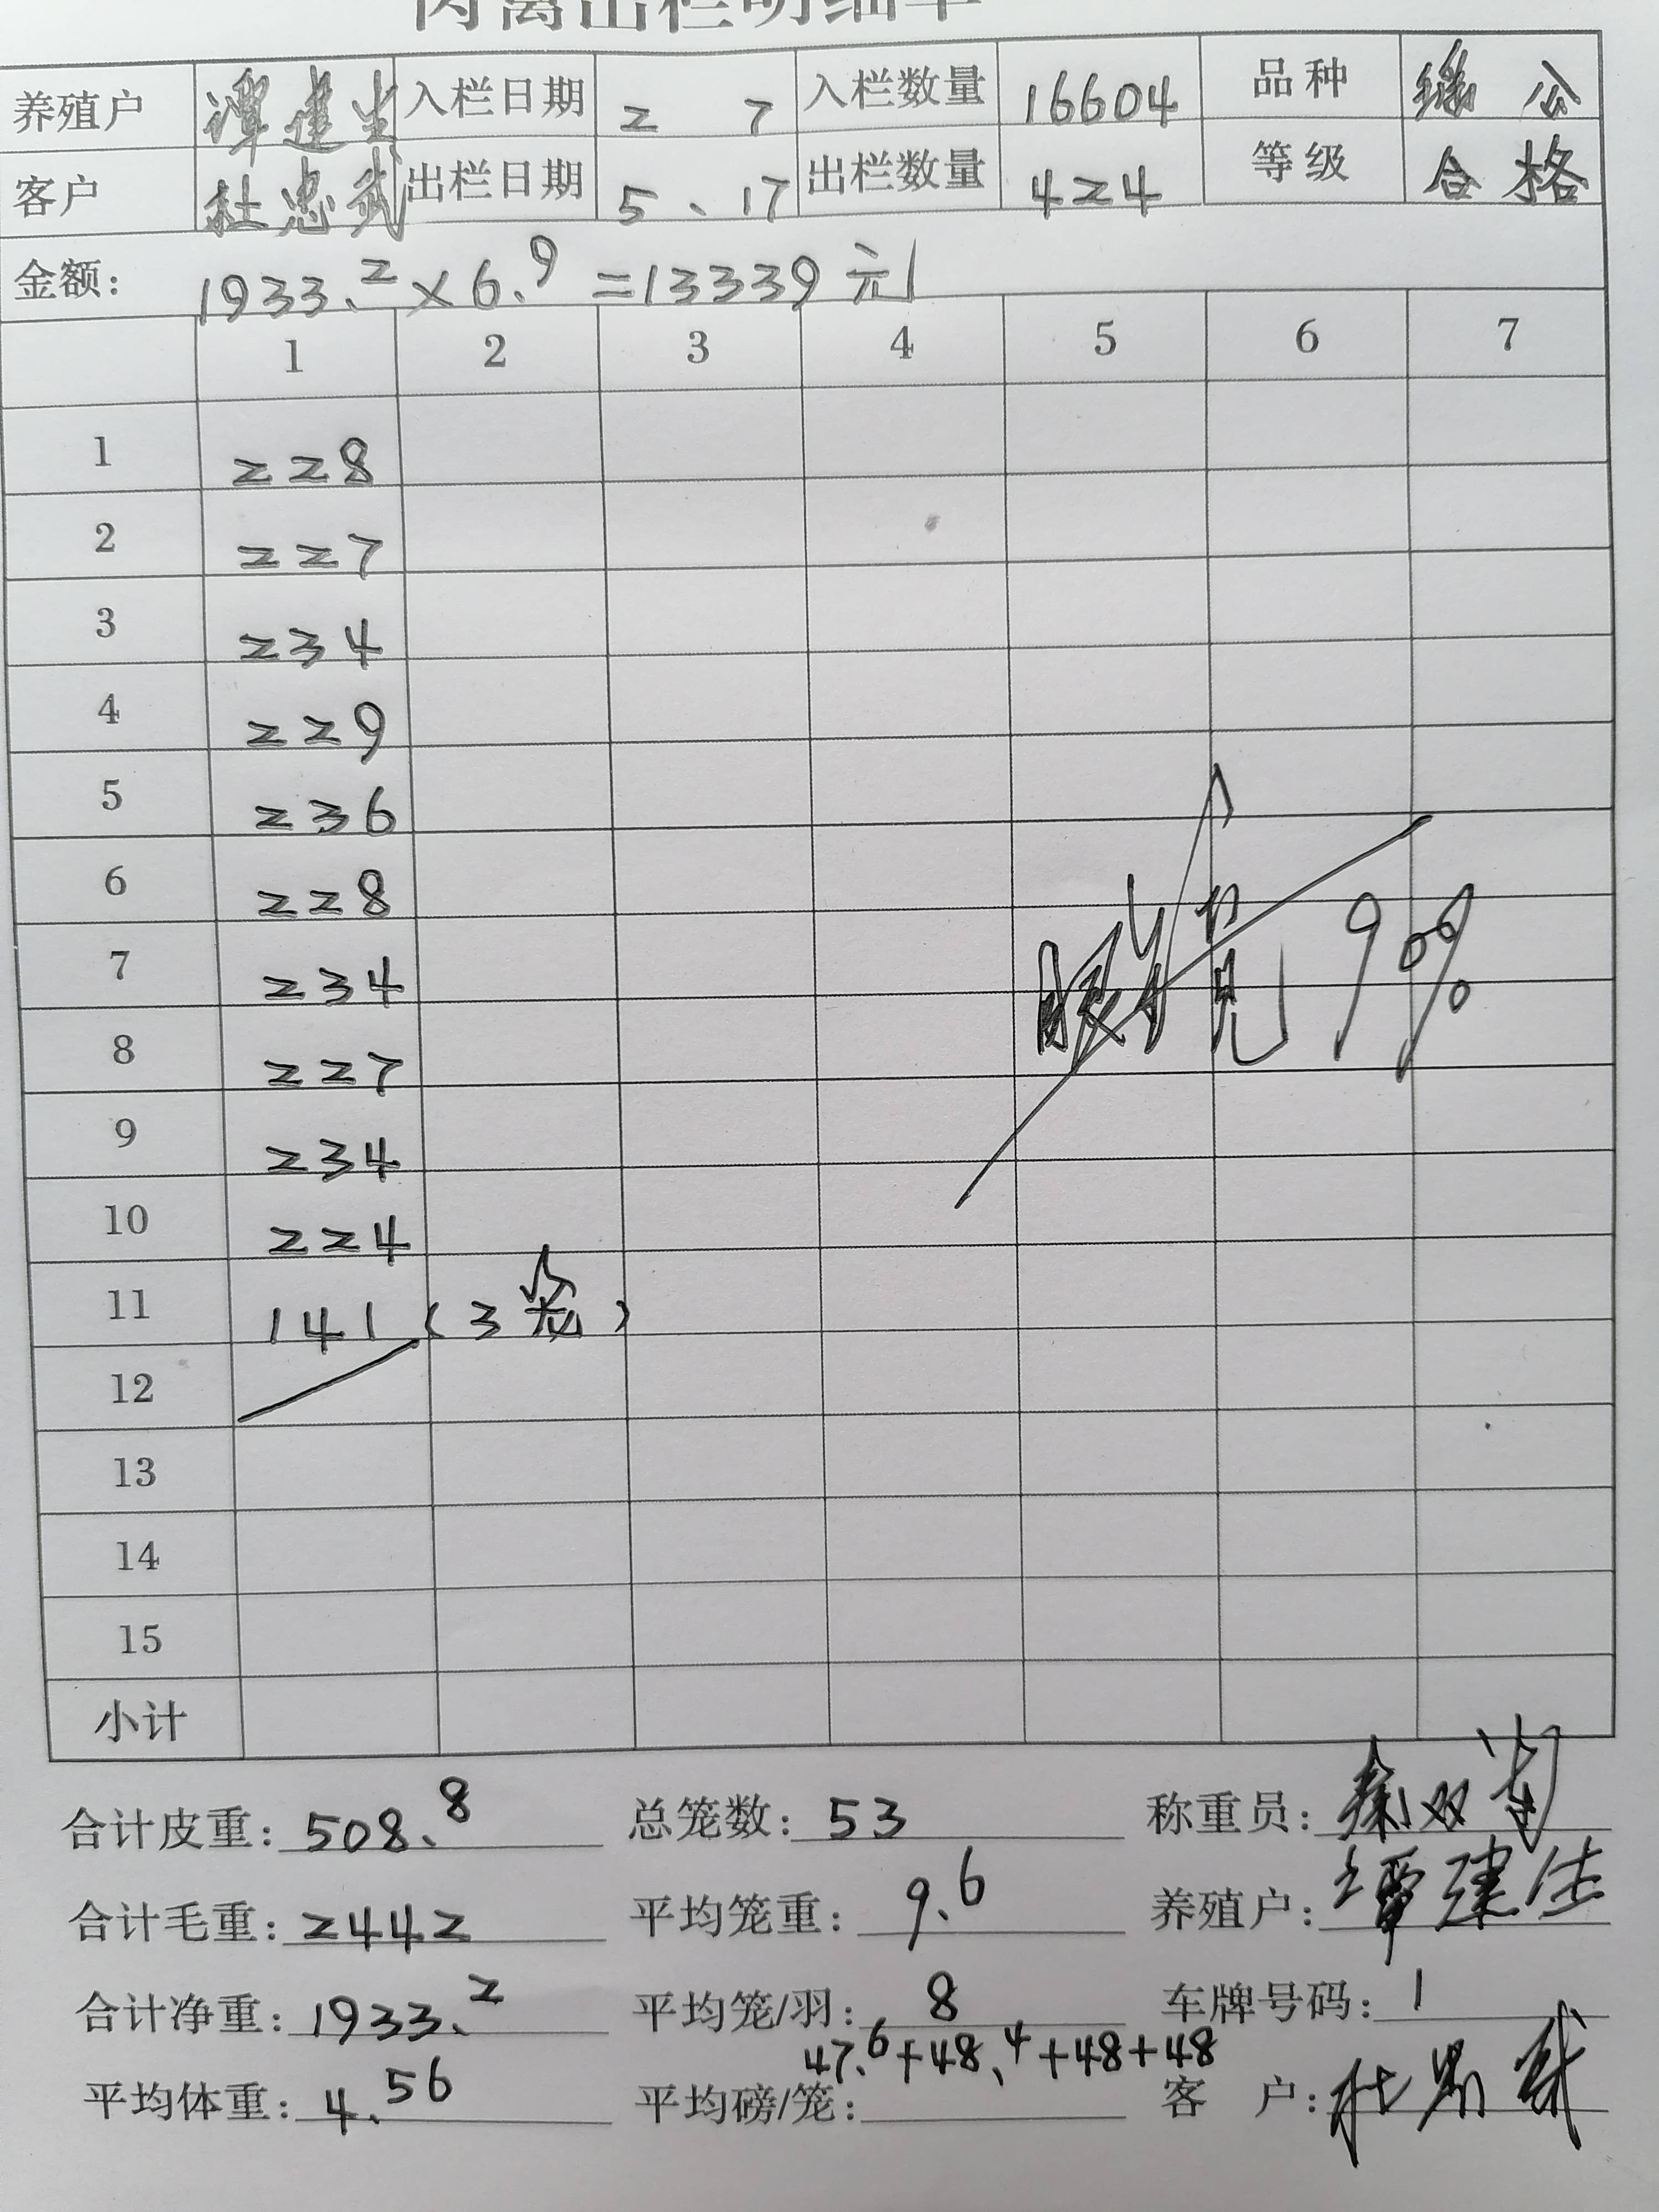 肉禽出栏明细单
养殖户 谭建生 入栏日期 2 7 入栏数量 16604 品种 公
客户 杜忠武 出栏日期 5、17 出栏数量 424 等级 合格
金额: 1933.2×6.9=13339元
1 2 3 4 5 6 7
1 228
2 227
3 234
4 229
5 236
6 228
7 234
8 227
9 234
10 224
11 141(3笼)
12
13
14
15
小计
合计皮重: 508.8 总笼数: 53 称重员:
合计毛重: 2442 平均笼重: 9.6 养殖户: 谭建生
合计净重: 1933.2 平均笼/羽: 8 车牌号码: 1
47.6+48.4+48+48
平均体重: 4.56 平均磅/笼: 客 户: 杜忠武